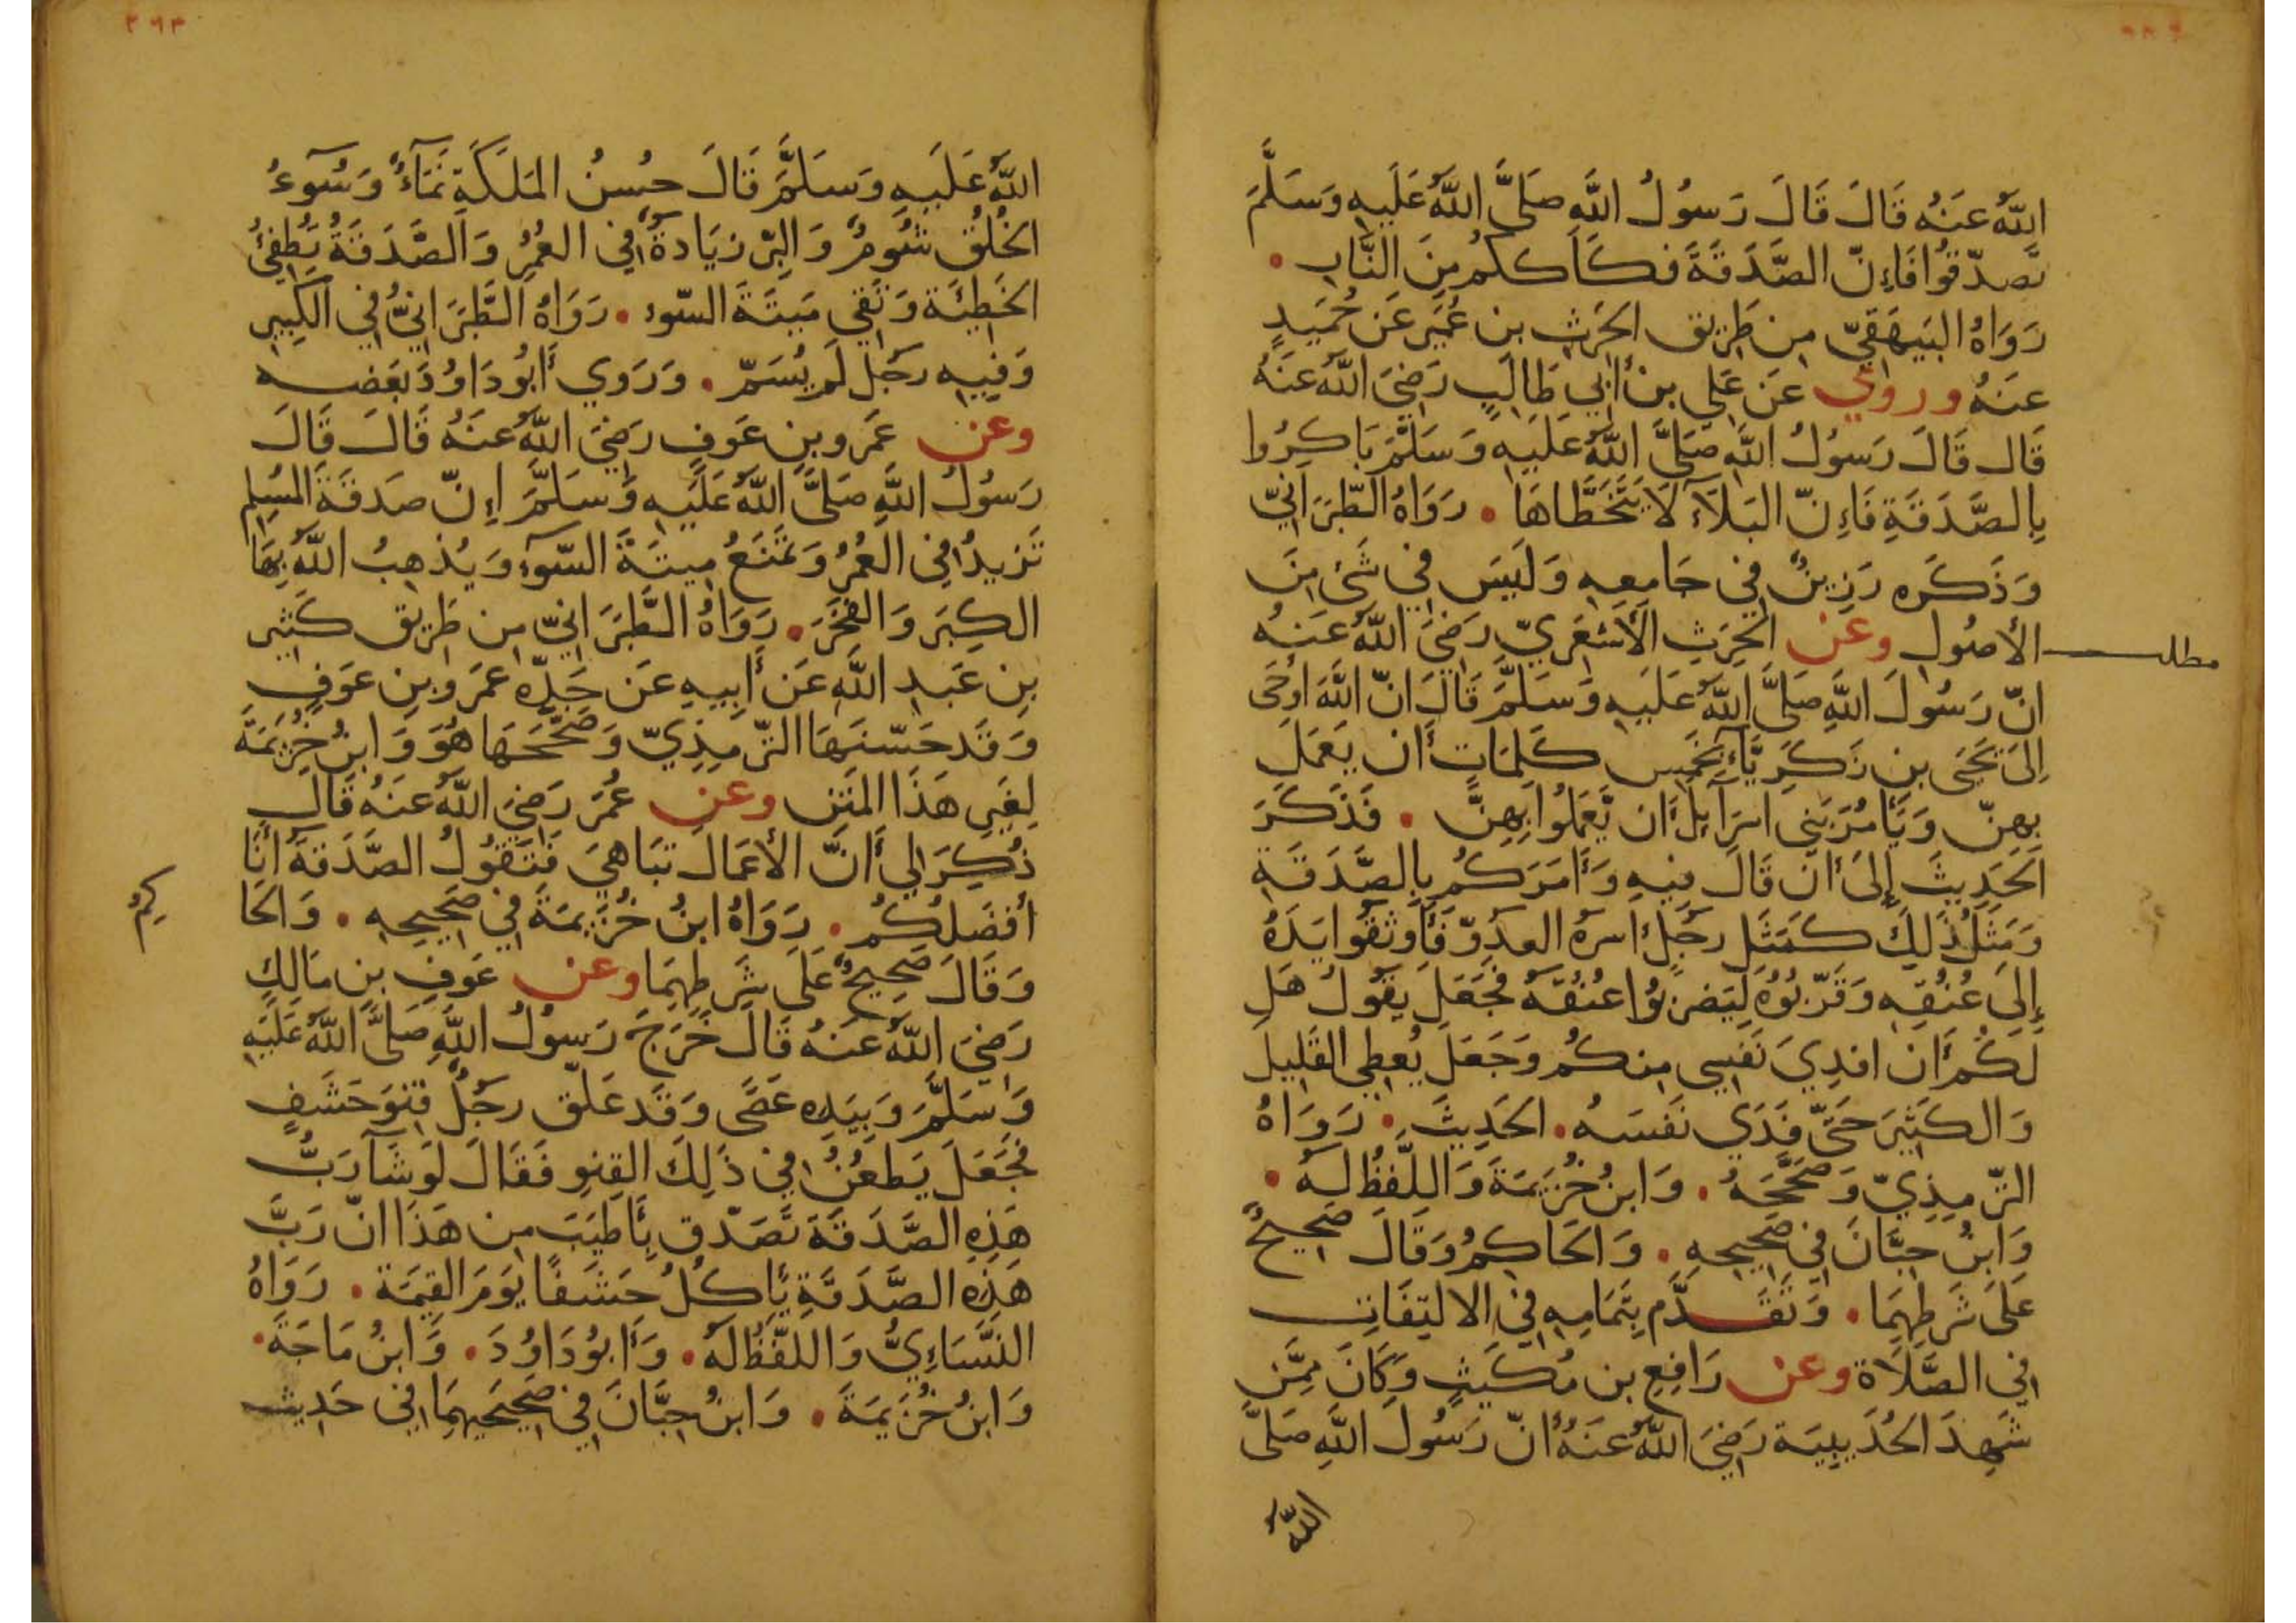 اللَّهُ عَنَهُ قَالَ قَالَ رَسُولُ اللَّهِ صَلَّى اللَّهُ عَلَيهِ وَسَلَّمَ
تَصدّقوُا فَاِنّ الصَّدَقَةَ فكَاككُم مِنَ النَّارِ •
رَوَاهُ البَيهَقِيّ مِن طَرِيق الحَرَثِ بن عُمَير عَن حُمَيدٍ
عَنهُ وروي عَن عَلِي بن أبي طَالِبٍ رَضِيَ اللَّهُ عَنَهُ
قَال قَالَ رَسُولُ اللَّهِ صَلَّى اللَّهُ عَلَيهِ وَسَلَّمَ بَاكِرُوا
بِالصَّدَقَةِ فَاِنّ البَلَآءَ لَا يَتَخَطَّاهَا • رَوَاهُ الطّبَرَانِيّ
وَذَكَره رَزِينٌ في جَامِعِهِ وَلَيسَ في شَئ مِنَ
الأصُول وعن الحَرِثِ الأَشعَرِيّ رَضِيَ اللَّهُ عَنهُ
مطلب
انّ رَسُولَ اللَّهِ صَلَّى اللَّهُ عَلَيهِ وَسَلَّمَ قَالَ انّ اللَّهَ اوحَى
اِلىَ يَحيَى بنِ زَكَرِيَّآءَ بِخَمسِ كَلِمَاتٍ أَن يَعمَلَ
بِهِنّ وَيَأمُرَ بَنِي اسرَآيِلَ أن يَّعمَلُوا بِهِنَّ • فَذَكَرَ
الحَدِيثَ إلَىَ أن قَالَ فِيهِ وَأمَرَكُم بِالصَّدَقَةِ
وَمِثلُ ذَلِكَ كَمَثَلِ رجُلٍ اسرَهُ العدوّ فَأوثقوُا يَدَهُ
إلىَ عُنُقِهِ وَقَرّبوُهُ لِيَضرِبُوا عنُقَهُ فجَعَلَ يقوُلُ هَل
لَكُم أَن افدِيَ نَفسِي مِنكُم وَجَعَلَ يُعطِي القَلِيلَ
وَالكَثِيرَ حَتّى فَدَي نَفسَهُ • الحَدِيثَ • رَوَاهُ
التّرمِذِيّ وَصَحَّحَهُ • وَابنُ خُزَيمَةَ وَاللَّفظُ لهُ •
وَابنُ حِبَّانَ في صَحِيحِهِ • وَالحَاكِمُ وَقَالَ صَحِيحٌ
عَلىَ شَرطِهِمَا • وَتَقَدَّم بِتَمَامِهِ في الالتِفَاتِ
في الصَّلَاة وعن رَافِع بن مُكَيثٍ وَكَانَ مِمَّن
شَهِدَ الحُدَيبِيَة رَضِيَ اللَّهُ عَنَهُ أنّ رَسُولَ اللَّهِ صَلَّى
اللَّهُ
٣٩٣
اللَّهُ عَلَيهِ وَسَلَّمَ قَالَ حُسنُ المَلَكَةِ نَمَآءٌ وَسُوءُ
الخُلُقِ شُومٌ وَالبِرّ زيَادةٌ في العُمُرِ وَالصَّدَقَةُ تُطفِئُ
الخَطِيَّة وَتَقِي مَيتَةَ السّوءِ • رَوَاهُ الطَّبَرَانِيُّ في الكَبِيرِ
وَفِيهِ رَجُل لَم يُسَمّ • وَرَوي أَبُو دَاوُدَ بَعَضهُ
وعن عَمَرو بنِ عَوفٍ رَضِيَ اللَّهُ عَنَهُ قَالَ قَالَ
رَسُولُ اللَّهِ صَلَّى اللَّهُ عَلَيهِ وَسَلَّمَ اِنّ صَدَقَةَ المُسلِم
تَزيدُ في العُمُرِ وَتَمنَعُ مِيتَةَ السّوَءِ وَيُذهِبُ اللَّهُ بِهَا
الكِبَر وَالفَخرَ • رَوَاهُ الطَّبَرَانِيّ مِن طَرِيق كَثِيرِ
بِن عَبدِ اللَّهِ عَن أَبِيهِ عَن جَدّه عَمرَو بنِ عَوفٍ
وَقَد حَسّنَهَا التّرمِذِيّ وَصَحَّحَهَا هُوَ وَابنُ خُزَيمَةَ
لِغَيرِ هَذَا المَتنِ وعن عُمَرَ رَضِيَ اللَّهُ عَنَهُ قَالَ
ذُكِرَ لِي أَنَّ الأعمَالَ تبَاهِيَ فَتَقُولُ الصَّدَقَةُ أنَا
أفضَلُكُم • رَوَاهُ ابنُ خُزَيمَةَ في صَحِيحِهِ • وَالحَا
كِمُ
وَقَالَ صَحِيحٌ عَلَى شَرطِهِمَا وعن عَوفِ بنِ مَالِكٍ
رَضِيَ اللَّهُ عَنهُ قَالَ خَرَجَ رَسُولُ اللَّهِ صَلَّى اللَّهُ عَلَيَهِ
وَسَلَّمَ وَبِيَدِهِ عَصًى وَقَد عَلّقَ رجُلٌ قِنوَ حَشَفٍ
فجَعَلَ يَطعُنُ في ذَلِكَ القِنوِ فَقَالَ لَو شَآ رَبُّ
هَذِهِ الصَّدَقَة تَصَدّق بِأَطيَبَ مِن هَذَا انّ رَبَّ
هَذِه الصَّدَقَةِ يَأكُلُ حَشَفًا يَومَ القِيمَة • رَوَاهُ
النَّسَاءِيُّ وَاللَّفظُ لهُ • وَأَبوُ دَاوُدَ • وَابنُ مَاجَةَ •
وَابنُ خُزَيمَةَ • وَابنُ حِبَّانَ في صَحِيحَيهِمَا في حَدِيثٍ